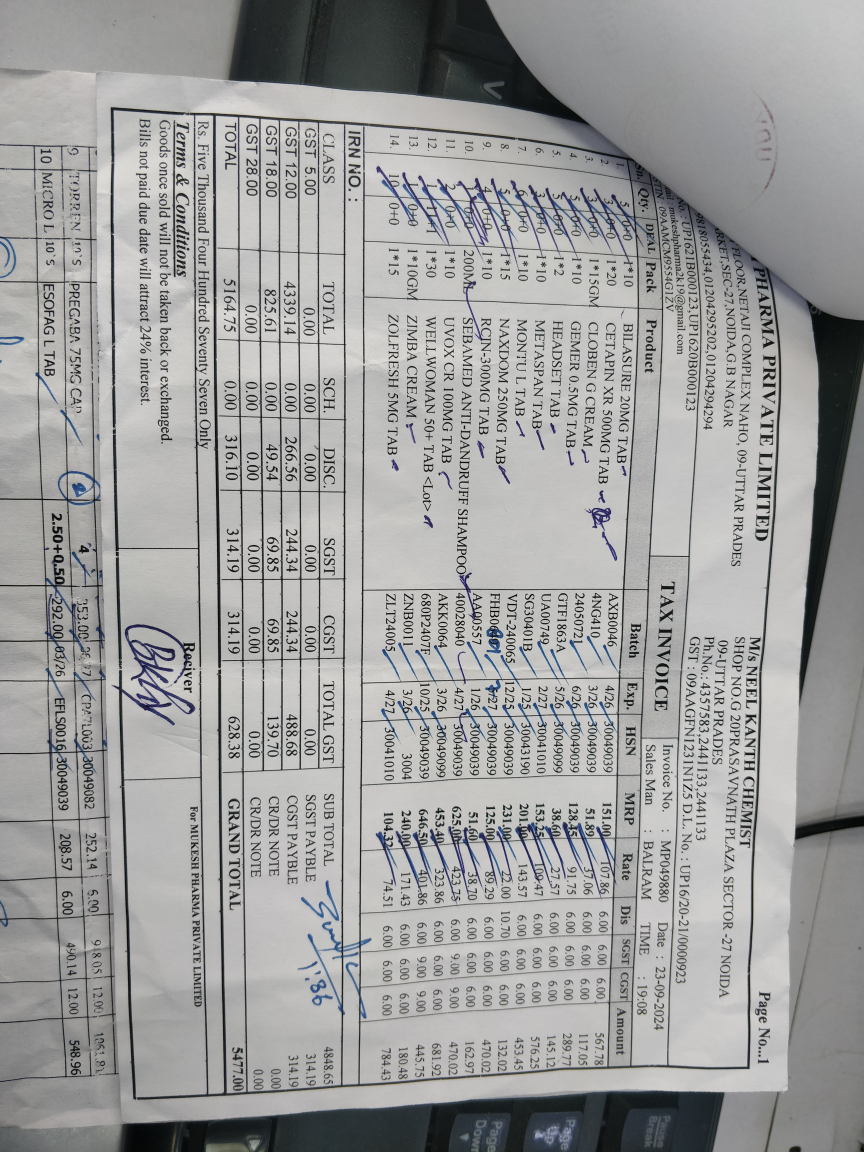 PHARMA PRIVATE LIMITED
FLOOR, NETAJI COMPLEX NAHO, 09-UTTAR PRADES
RKET, SEC-27, NOIDA, G.B NAGAR
9818055434,01204295202,01204294294
No.: UP1621B000123,UP1620B000123
mukeshpharma2k19@gmail.com
09AAMCM9554G1ZV
TAX INVOICE
Page No...1
M/s NEEL KANTH CHEMIST
SHOP NO.G 20PRASAVNATH PLAZA SECTOR -27 NOIDA
09-UTTAR PRADES
Ph.No.: 4357583,2441133,2441133
GST : 09AAGFN1231N1Z5 D.L. No. : UP16/20-21/0000923
Invoice No. : MP049880 Date : 23-09-2024
Sales Man : BALRAM TIME : 19:08
Sn. Qty. DEAL Pack Product Batch Exp. HSN MRP Rate Dis SGST CGST Amount
1. 5 0+0 1*10 BILASURE 20MG TAB AXB0046 4/26 30049039 151.00 107.86 6.00 6.00 6.00 567.78
2. 3 0+0 1*20 CETAPIN XR 500MG TAB 4NG410 3/26 30049039 51.89 37.06 6.00 6.00 6.00 117.05
3. 3 0+0 1*15GM CLOBEN G CREAM 24050721 6/26 30049039 128.45 91.75 6.00 6.00 6.00 289.77
4. 5 0+0 1*10 GEMER 0.5MG TAB GTF1863A 5/26 30049099 38.60 27.57 6.00 6.00 6.00 145.12
5. 5 0+0 1*2 HEADSET TAB UA00749 2/27 30041010 153.25 109.47 6.00 6.00 6.00 576.25
6. 3 0+0 1*10 METASPAN TAB SG30401B 1/25 30043190 201.00 143.57 6.00 6.00 6.00 453.45
7. 6 0+0 1*10 MONTU L TAB VDT-240065 12/25 30049039 231.00 22.00 10.70 6.00 6.00 132.02
8. 5 0+0 1*15 NAXDOM 250MG TAB 30049039 125.00 89.29 6.00 6.00 6.00 470.02
9. 4 0+0 1*10 RCIN-300MG TAB AA00557 1/26 30049039 51.60 38.70 6.00 6.00 6.00 162.97
10. 0+0 200ML SEBAMED ANTI-DANDRUFF SHAMPOO 40028040 4/27 30049039 625.00 423.75 6.00 9.00 9.00 470.02
11. 0+0 1*10 UVOX CR 100MG TAB AKK0064 3/26 30049099 453.40 323.86 6.00 6.00 6.00 681.92
12. 1*30 WELLWOMAN 50+ TAB <Lot> 680P2407F 10/25 30049039 646.50 401.86 6.00 9.00 9.00 445.75
13. 0+0 1*10GM ZIMBA CREAM ZNB0011 3/26 3004 240.00 171.43 6.00 6.00 6.00 180.48
14. 10 0+0 1*15 ZOLFRESH 5MG TAB ZLT24005 4/27 30041010 104.32 74.51 6.00 6.00 6.00 784.43
IRN NO. :
CLASS TOTAL SCH. DISC. SGST CGST TOTAL GST
GST 5.00 0.00 0.00 0.00 0.00 0.00 0.00
GST 12.00 4339.14 0.00 266.56 244.34 244.34 488.68
GST 18.00 825.61 0.00 49.54 69.85 69.85 139.70
GST 28.00 0.00 0.00 0.00 0.00 0.00 0.00
TOTAL 5164.75 0.00 316.10 314.19 314.19 628.38
SUB TOTAL 4848.65
SGST PAYBLE 314.19
CGST PAYBLE 314.19
CR/DR NOTE 0.00
CR/DR NOTE 0.00
GRAND TOTAL 5477.00
Rs. Five Thousand Four Hundred Seventy Seven Only
Terms & Conditions
Goods once sold will not be taken back or exchanged.
Bills not paid due date will attract 24% interest.
Reciver
For MUKESH PHARMA PRIVATE LIMITED
9 TORREN 10'S PREGABA 75MG CAP 4 30049082 252.14 6.00 948.05 12.00
10 MICRO L 10'S ESOFAG L TAB 2.50+0.50 292.00 03/26 EFLS0016 30049039 208.57 6.00 490.14 12.00 548.96
Page Up
Page Down
Pause Break